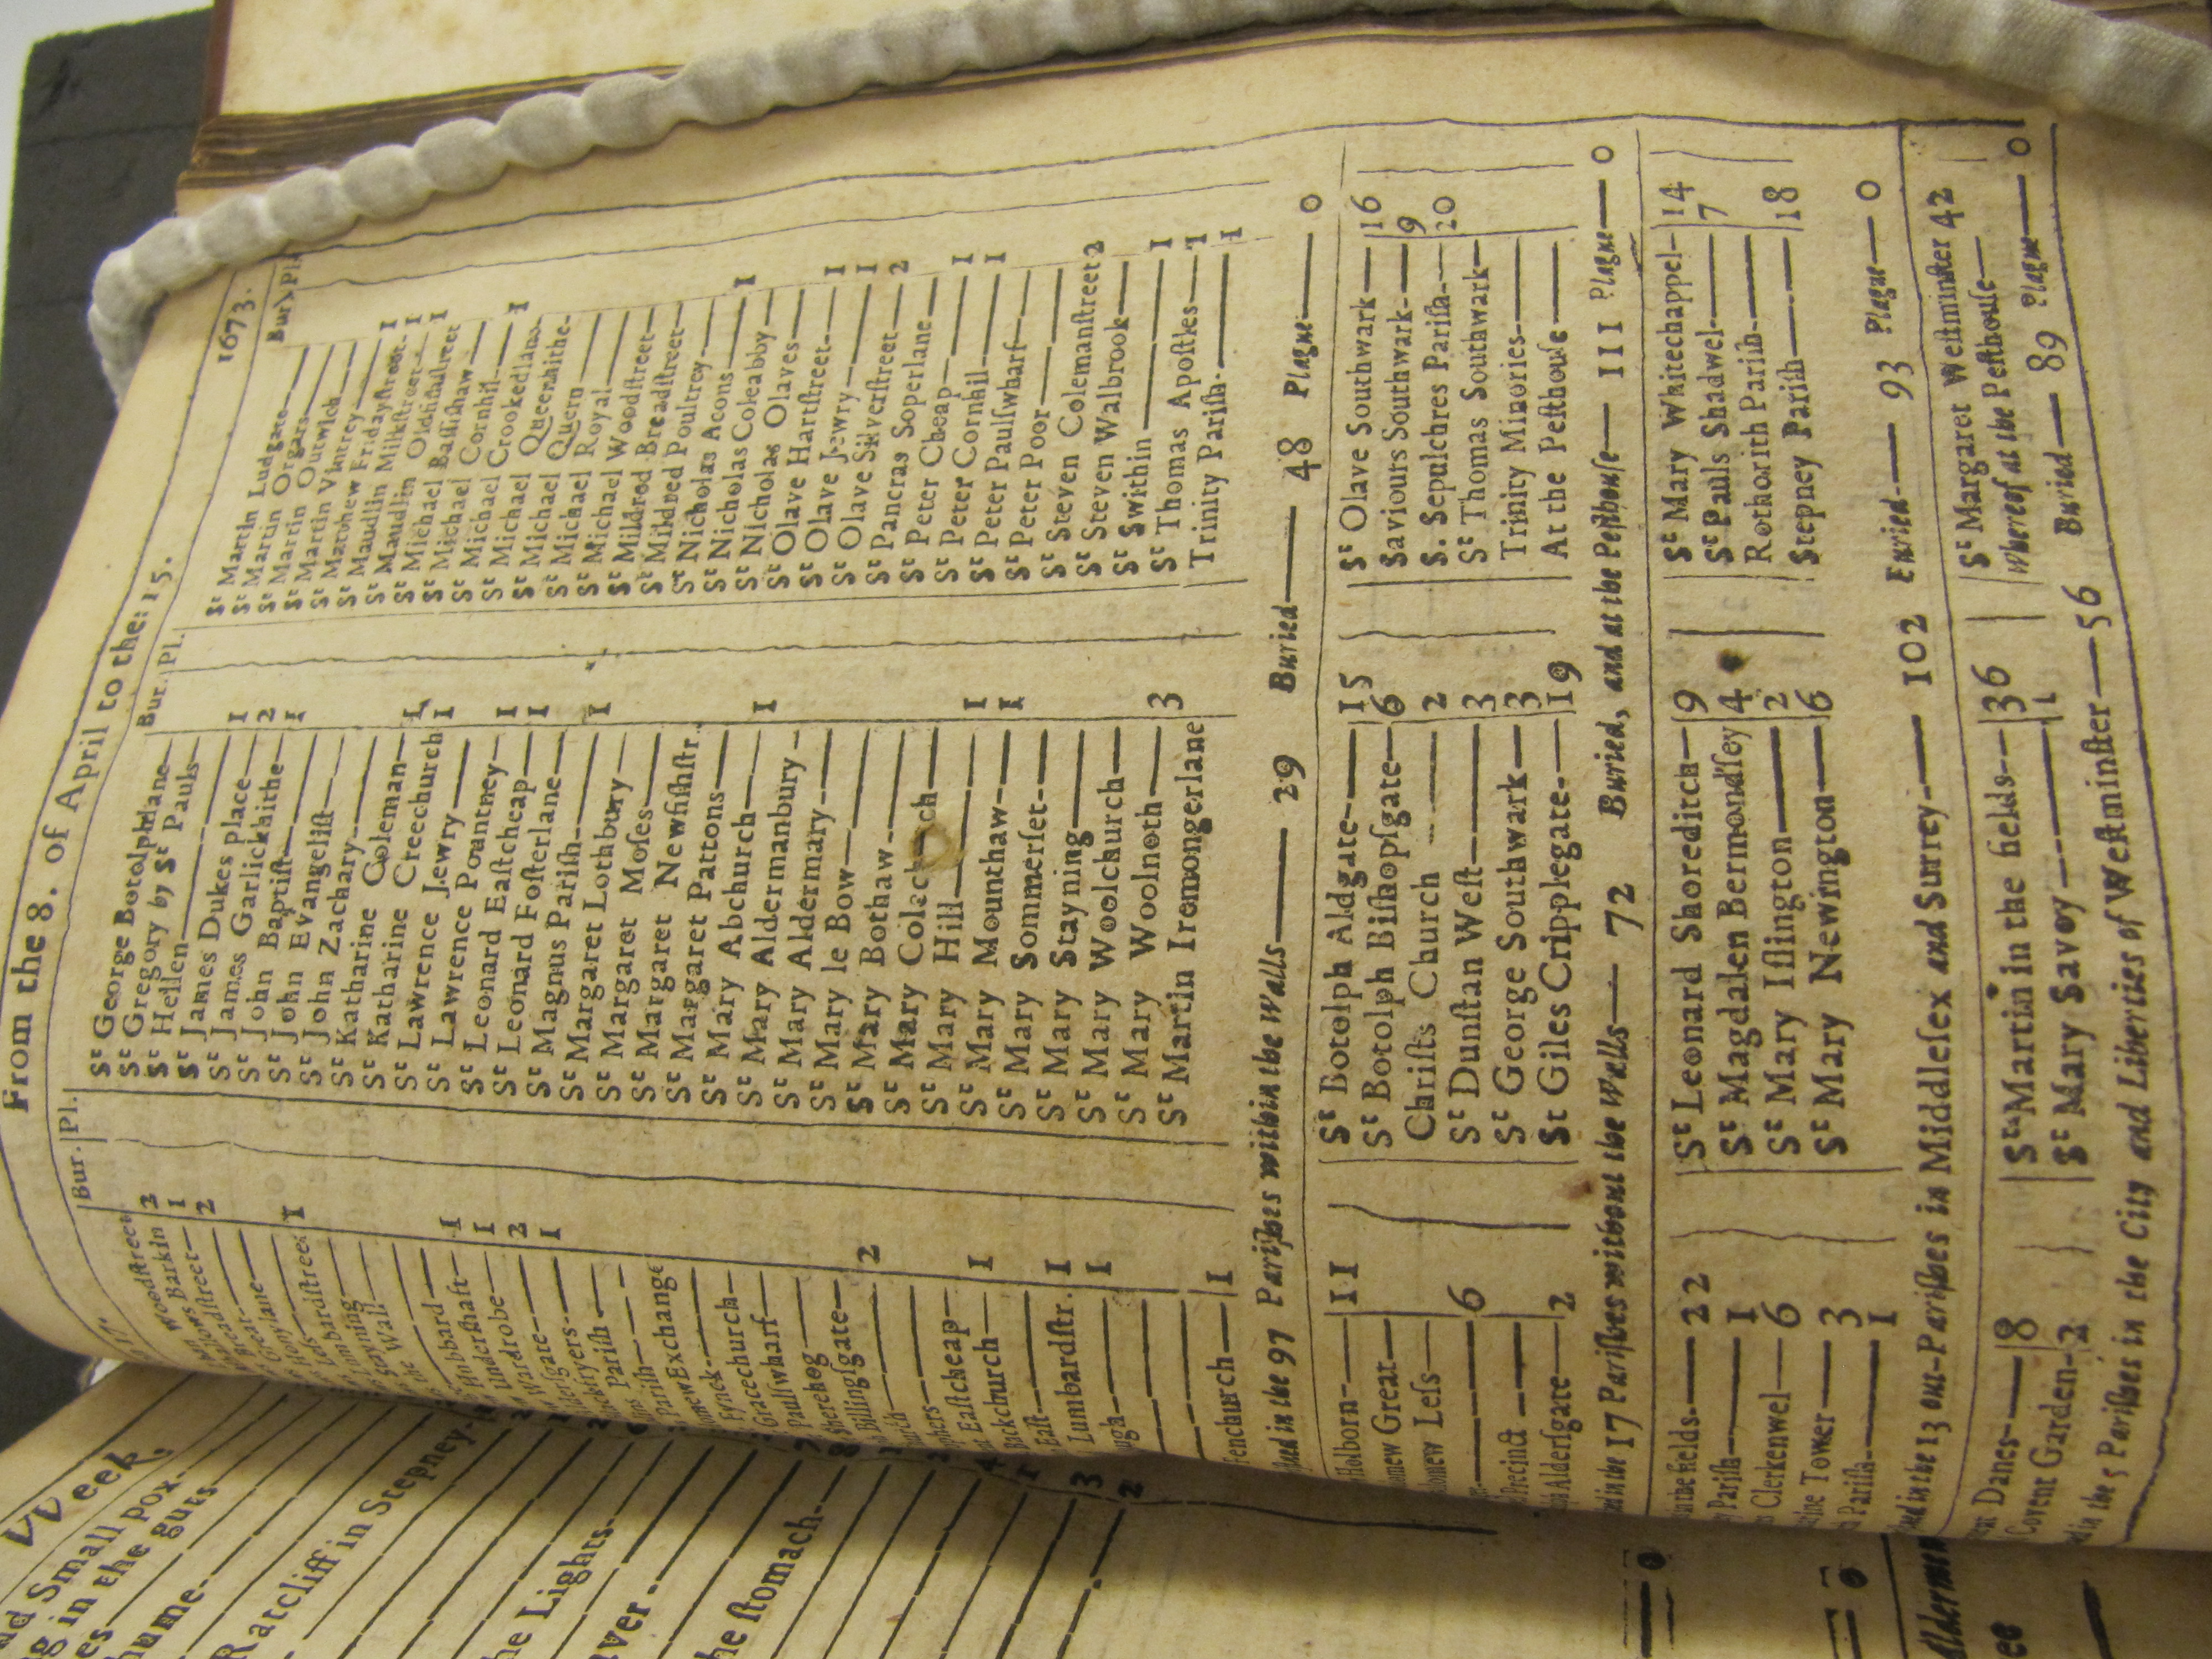 From the 8. of April to the: 15. 1673.
Bur. Pl.
Woodſtreet 2
Barkin 1
2
Hony lane
Lumbardſtreet 1
Stayning
the Wall
Hubbard 1
Underſhaft 1
Wardrobe 2
1
Pariſh
Exchange
Fynck
Gracechurch
Paulſwharf
Sherehog
Billingſgate
2
Eaſtcheap
Backchurch 1
Eaſt
Lumbardſtr. 1
1
Fenchurch 1
Bur. Pl.
St George Botolphlane
St Gregory by St Pauls
St Hellen
St James Dukes place 1
St James Garlickhithe 2
St John Baptiſt 1
St John Evangeliſt
St John Zachary
St Katharine Coleman
St Katharine Creechurch 1
St Lawrence Jewry 1
St Lawrence Pountney
St Leonard Eaſtcheap 1
St Leonard Foſterlane 1
St Magnus Pariſh
St Margaret Lothbury 1
St Margaret Moſes
St Margaret Newfiſhſtr.
St Margaret Pattons
St Mary Abchurch
St Mary Aldermanbury 1
St Mary Aldermary
St Mary le Bow
St Mary Bothaw
St Mary Colechurch
St Mary Hill
St Mary Mounthaw 1
St Mary Sommerſet 1
St Mary Stayning
St Mary Woolchurch
St Mary Woolnoth
St Martin Iremongerlane 3
Bur. Pl.
St Martin Ludgate
St Martin Orgars
St Martin Outwich
St Martin Vintrey
St Matthew Fridayſtreet
St Maudlin Milkſtreet 1
St Maudlin Oldfiſhſtreet 1
St Michael Baſſiſhaw 1
St Michael Cornhil
St Michael Crookedlane
St Michael Queenhithe 1
St Michael Quern
St Michael Royal
St Michael Woodſtreet
St Mildred Breadſtreet
St Mildred Poultrey
St Nicholas Acons
St Nicholas Coleabby
St Nicholas Olaves 1
St Olave Hartſtreet
St Olave Jewry
St Olave Silverſtreet 1
St Pancras Soperlane 1
St Peter Cheap 2
St Peter Cornhil
St Peter Paulſwharf 1
St Peter Poor 1
St Steven Colemanſtreet 2
St Steven Walbrook
St Swithin
St Thomas Apoſtles 1
Trinity Pariſh 1
in the 97 Pariſhes within the Walls 29 Buried 48 Plague 0
Holborn 11
Great
Leſs
6
Precinct
Alderſgate 2
St Botolph Aldgate 15
St Botolph Biſhopſgate 6
Chriſts Church 2
St Dunſtan Weſt 3
St George Southwark 3
St Giles Cripplegate 19
St Olave Southwark 16
Saviours Southwark 9
S. Sepulchres Pariſh 20
St Thomas Southwark
Trinity Minories
At the Peſthouſe
in the 17 Pariſhes without the Walls 72 Buried, and at the Peſthouſe 111 Plague 0
in the fields 22
Pariſh 1
Clerkenwel 6
Tower 3
Pariſh 1
St Leonard Shoreditch 9
St Magdalen Bermondſey 4
St Mary Iſlington 2
St Mary Newington 6
St Mary Whitechappel 14
St Pauls Shadwel 7
Rothorith Pariſh
Stepney Pariſh 18
in the 13 out-Pariſhes in Middleſex and Surrey 102 Buried 93 Plague 0
Danes 8
Covent Garden 2
St Martin in the fields 36
St Mary Savoy 1
St Margaret Weſtminſter 42
Whereof at the Peſthouſe
in the 5 Pariſhes in the City and Liberties of Weſtminſter 56 Buried 89 Plague 0
Week
Small Pox
in the guts
Ratcliff in Stepney
Lights
ſtomach
3
2